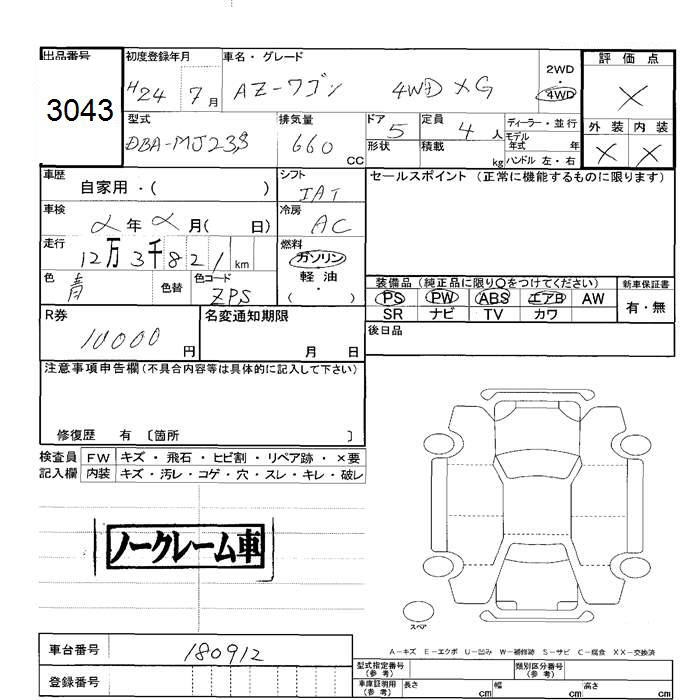 出品番号
3043
初度登録年月
H24 7月
車名・グレード
AZ-ワゴン 4WD XG
2WD
・
4WD
評価点
×
外装 内装
× ×
型式
DBA-MJ23S
排気量
660 CC
ドア 5
形状
定員 4 人
積載 kg
ディーラー・並行
モデル年式 年
ハンドル 左・右
車歴
自家用・( )
シフト
IAT
セールスポイント (正常に機能するものに限ります)
車検
年 月( 日)
冷房
AC
走行
12万3千821km
燃料
ガソリン
軽油
・
( )
色
青
色替
色コード
ZPS
装備品 (純正品に限り○をつけてください)
PS PW ABS エアB AW
SR ナビ TV カワ
新車保証書
有・無
R券
10000円
名変通知期限
月 日
後日品
注意事項申告欄(不具合内容等は具体的に記入して下さい)
修復歴 有 〔箇所 〕
検査員 FW キズ・飛石・ヒビ割・リペア跡・×要
記入欄 内装 キズ・汚レ・コゲ・穴・スレ・キレ・破レ
ノークレーム車
スペア
A-キズ E-エクボ U-凹み W-補修跡 S-サビ C-腐食 XX-交換済
車台番号 180912
登録番号
型式指定番号(参考)
類別区分番号(参考)
車庫証明用(参考) 長さ cm 幅 cm 高さ cm